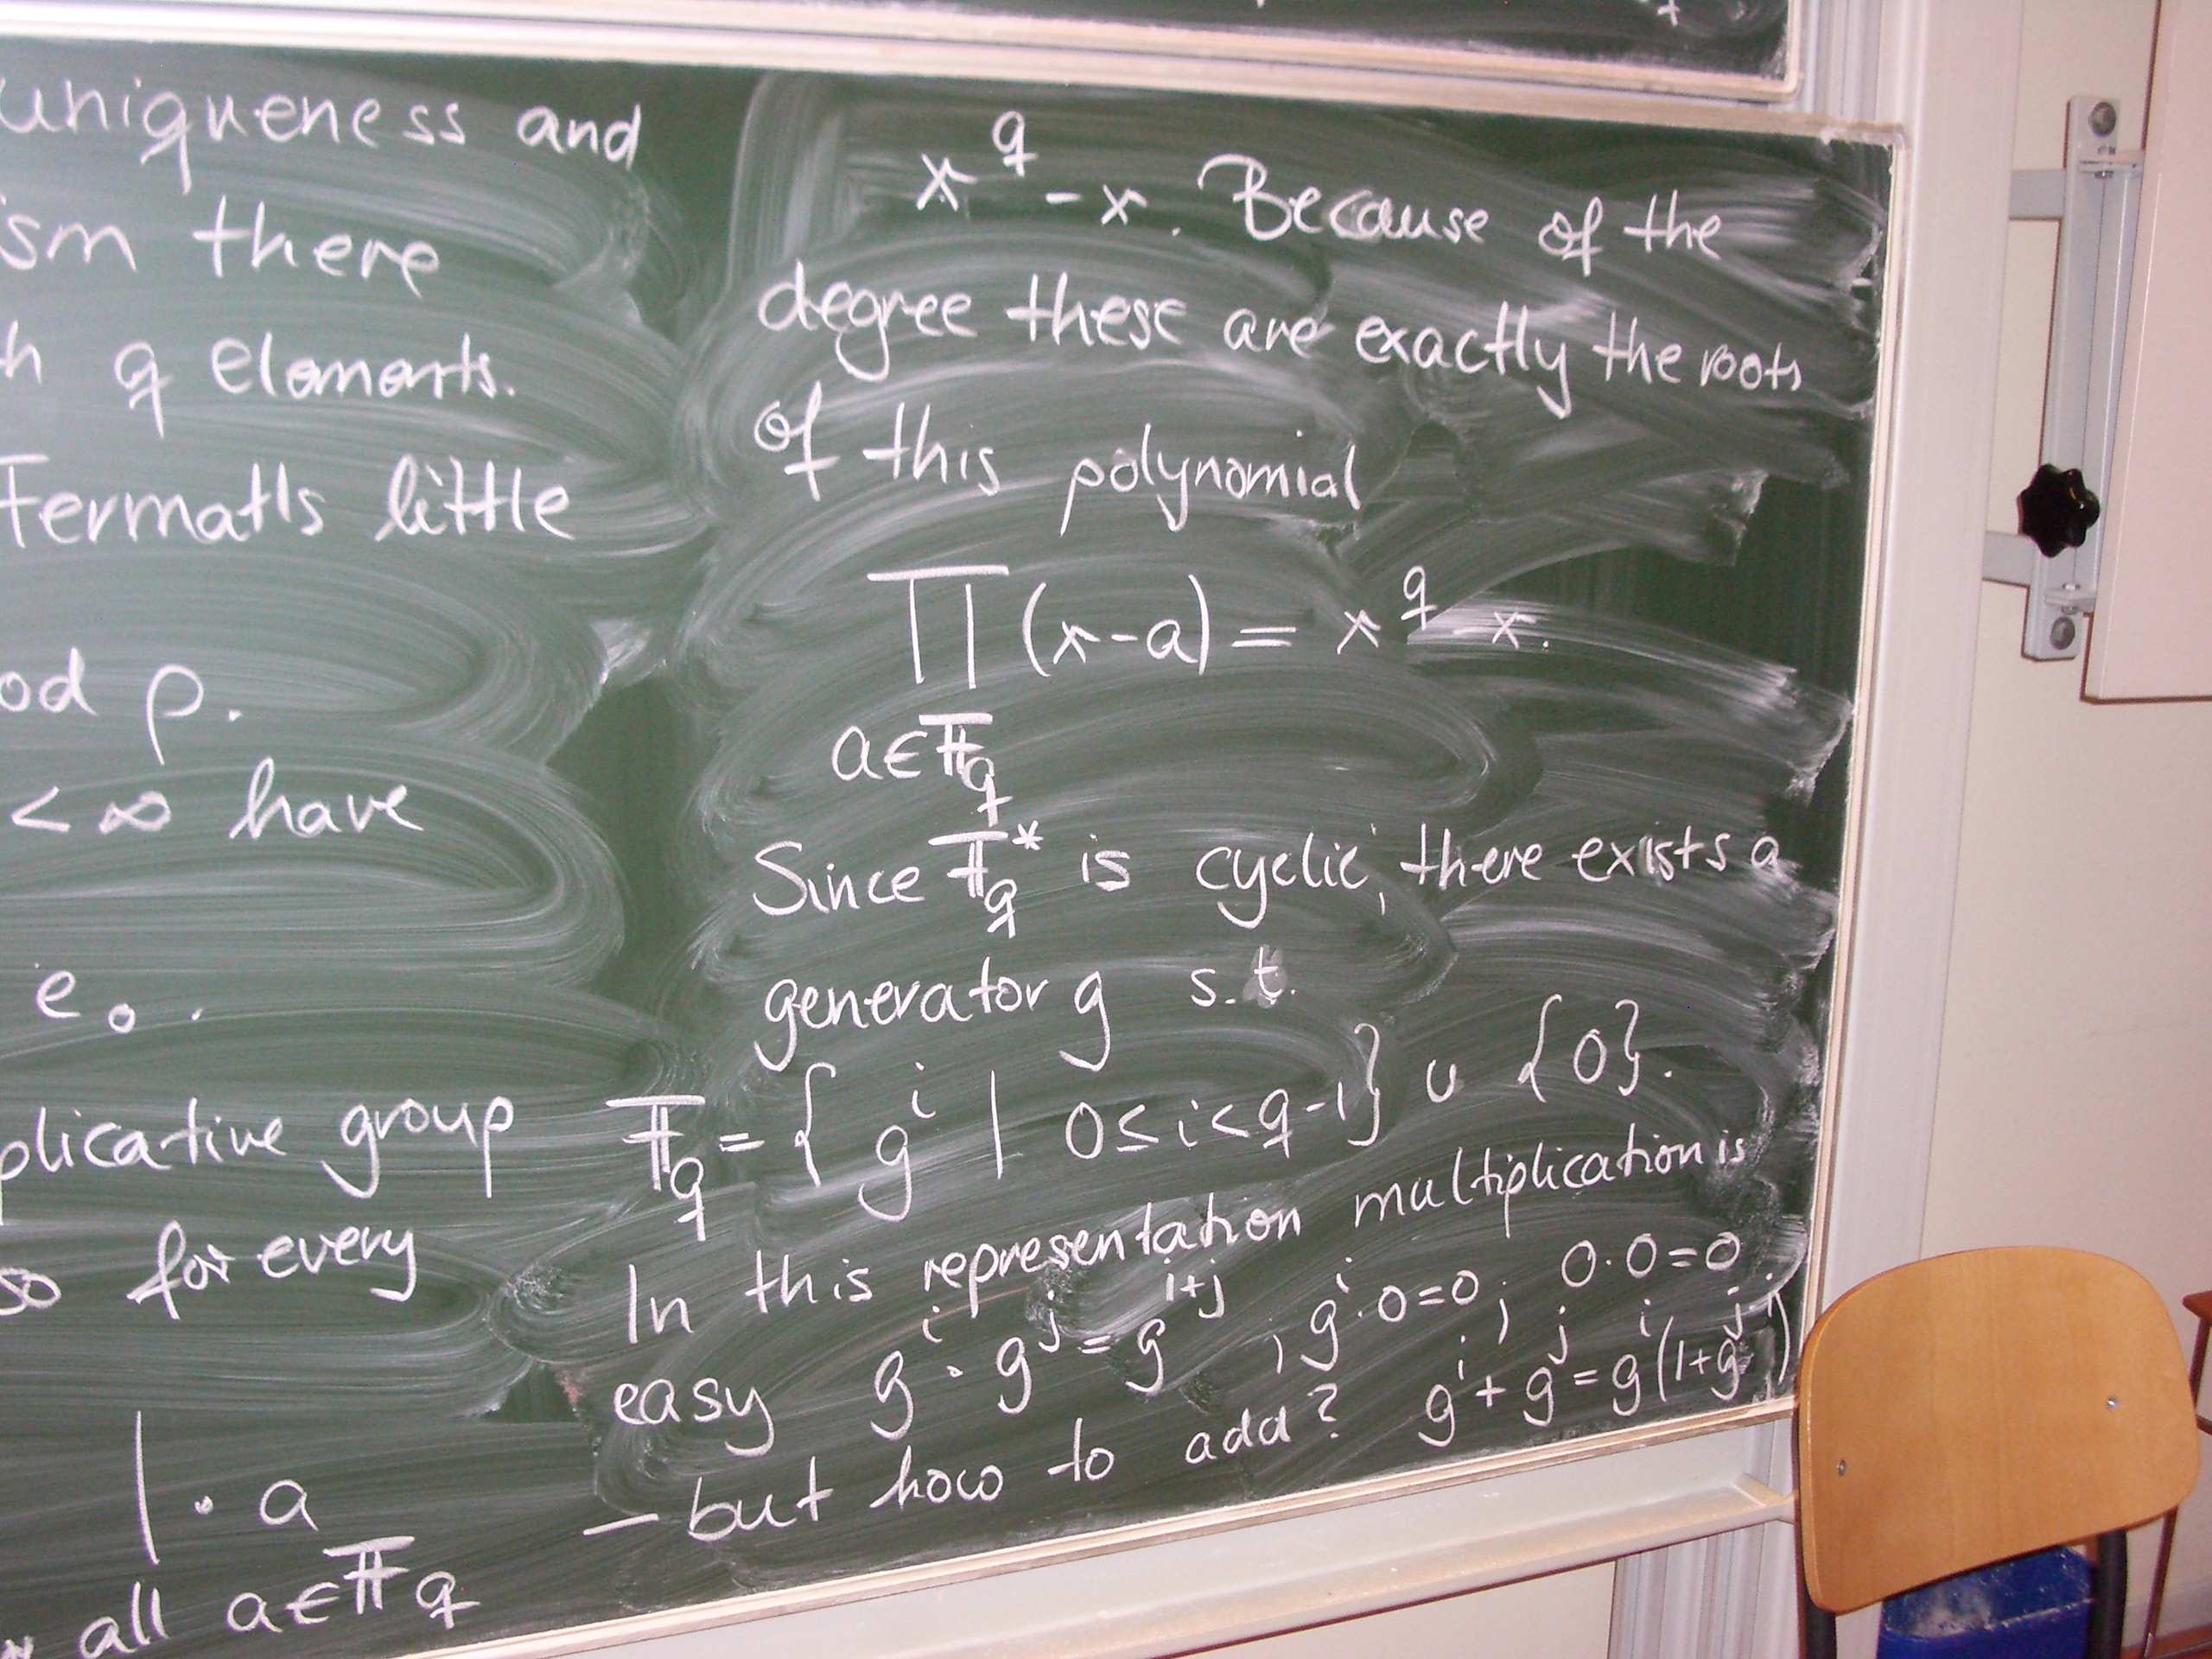 uniqueness and
ism there
h q elements.
Fermat's little
od p.
< ∞ have
e₀.
plicative group
so for every
1 · a
all a ∈ 𝔽_q
x^q - x. Because of the
degree these are exactly the roots
of this polynomial
∏ (x-a) = x^q - x.
a ∈ 𝔽_q
Since 𝔽_q^* is cyclic, there exists a
generator g s.t.
𝔽_q = { g^i | 0 ≤ i < q-1} ∪ {0}.
In this representation multiplication is
easy g^i · g^j = g^{i+j} , g^i · 0 = 0 , 0 · 0 = 0.
— but how to add? g^i + g^j = g^i (1+g^j )